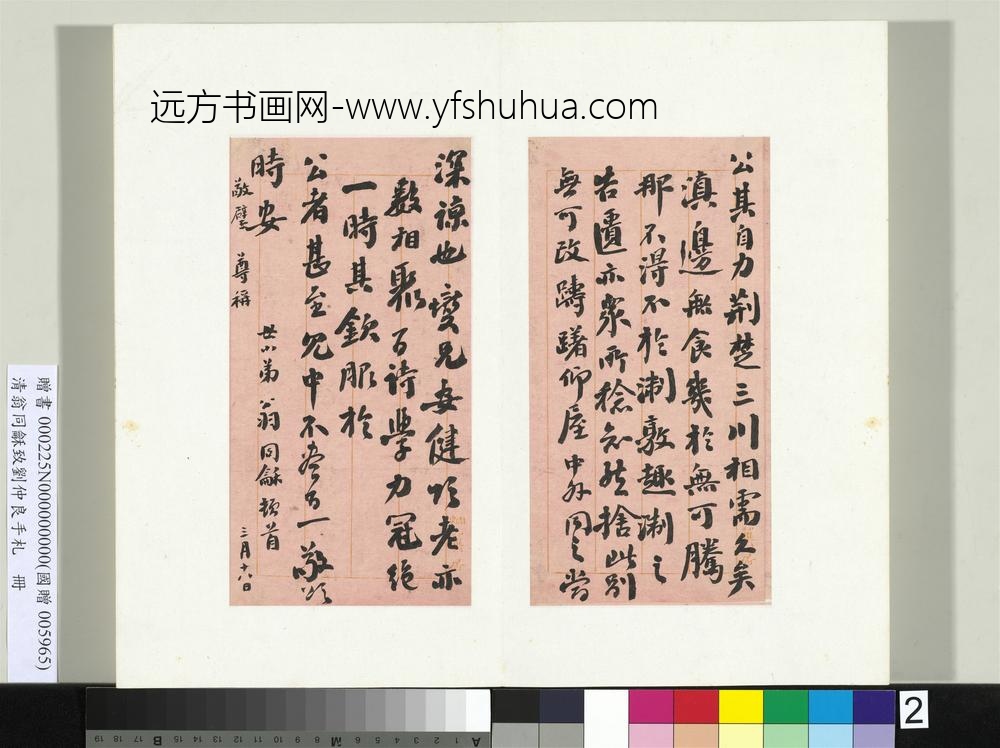 远方书画网-www.yfshuhua.com
公其自力荊楚三川相需久矣
滇邊無食幾於無可騰
那不得不於淛敷趣淛之
若匱亦眾所捻知然捨此別
無可改躊躇仰屋中外同之當
深諒也燮兄安健頌老亦
數相聚百詩學力冠絕
一時其欽服於
公者甚至冗中不盡百一敬頌
時安
世小弟翁同龢頓首
三月十八日
敬璧 尊稱
贈書 000225N000000000(國贈 005965)
清翁同龢致劉仲良手札 冊
2